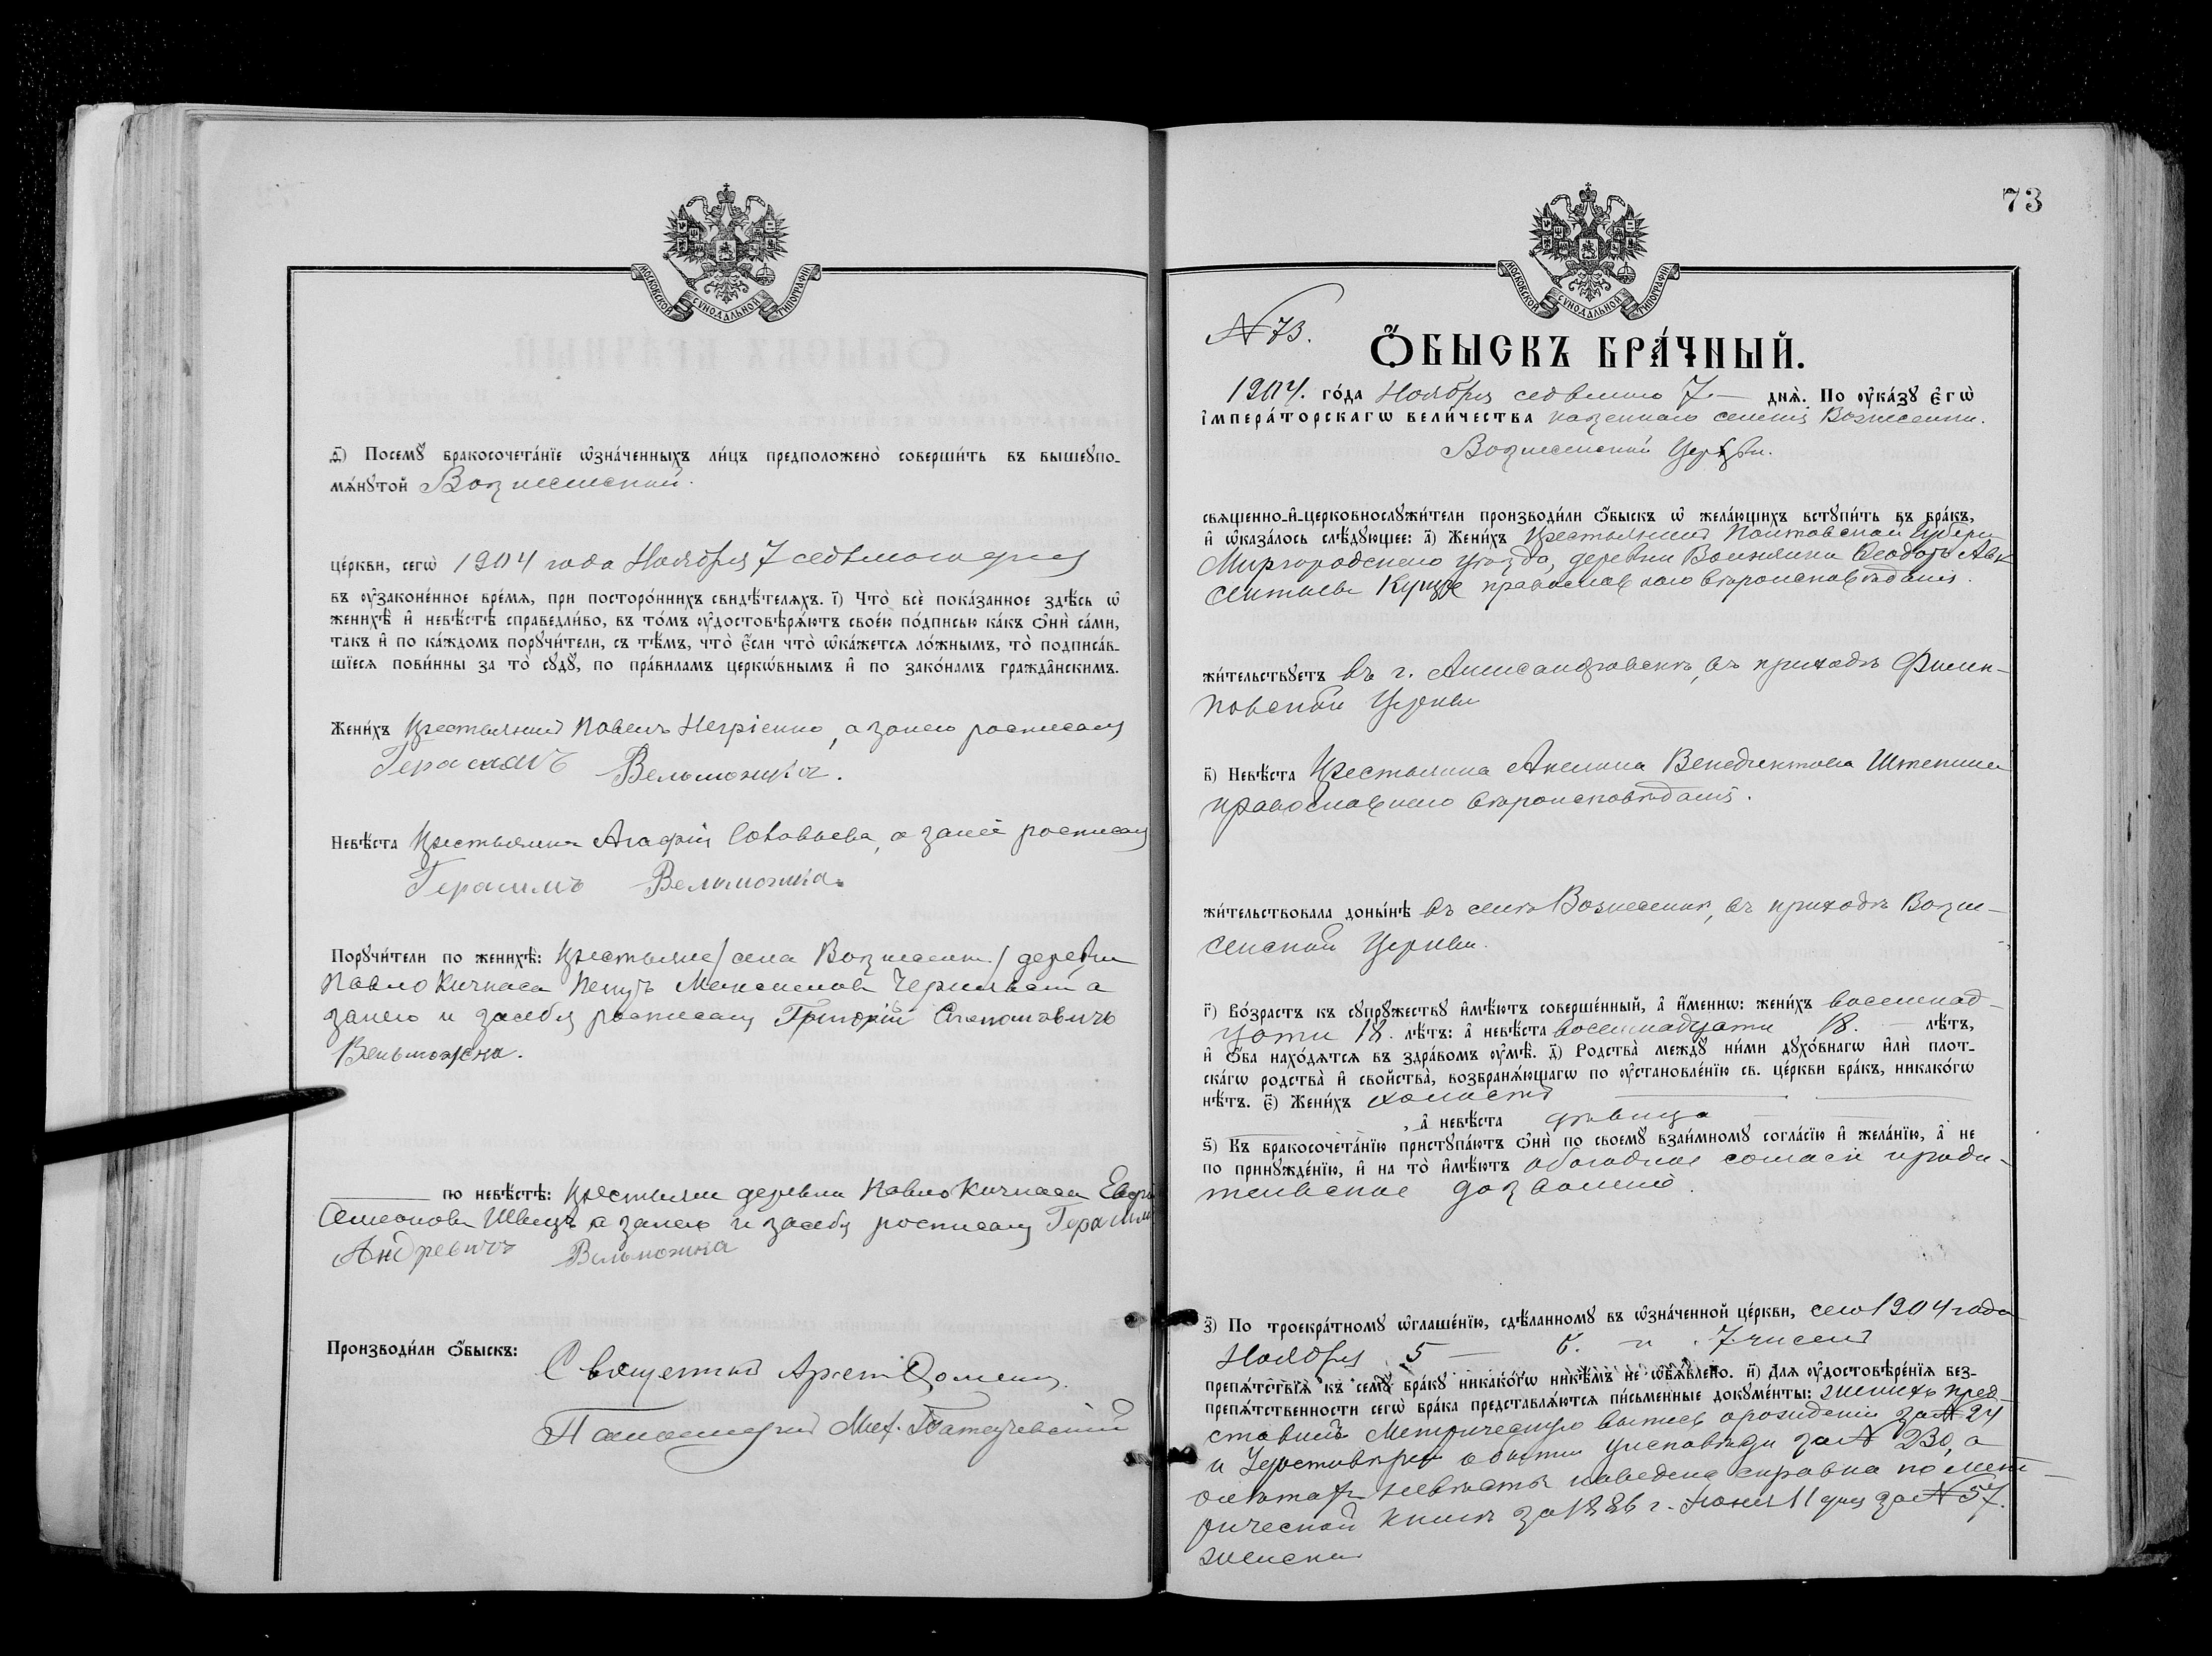 МОСКОВСКОЙ СѴНОДАЛЬНОЙ ТИПОГРАФІИ
д҃і) Посемꙋ̀ бракосочета́нїе ѡ҆зна́ченныхъ ли́цъ предположено̀ соверши́ть въ вышеꙋпо-
мѧ́нꙋтой Вознесенской.
це́ркви, сегѡ̀ 1904 года Ноября 7 седьмого дня
въ ᲂу҆законе́нное вре́мѧ, при посторо́ннихъ свидѣ́телѧхъ. і҃) Что̀ всѐ пока́занное здѣ́сь ѡ҆
женихѣ̀ и҆ невѣ́стѣ справедли́во, въ то́мъ ᲂу҆достовѣрѧ́ютъ свое́ю по́дписью ка́къ ѻ҆нѝ са́ми,
та́къ и҆ по ка́ждомъ порꙋчи́тели, съ тѣ́мъ, что̀ е҆́сли что̀ ѡ҆ка́жетсѧ ло́жнымъ, то̀ подписа́в-
шїесѧ пови́нны за то̀ сꙋдꙋ̀, по пра́виламъ церко́внымъ и҆ по зако́намъ гражда́нскимъ.
Жени́хъ Крестьянинъ Павелъ Негріенко, а за него росписался
Герасимъ Вельможка.
Невѣ́ста Крестьянка Агафія Соловьева, а за неё росписался
Герасимъ Вельможка.
Порꙋчи́тели по женихѣ̀: Крестьяне / села Вознесенки / деревни
Павло Кичкаса Петръ Максимовъ Чернявскій а
за него и за себя росписался Григорій Степановичъ
Вельможка.
по невѣ́стѣ: Крестьяне деревни Павло Кичкаса
Семеоновъ Швецъ а за него и за себя росписался Герасимъ
Андреевичъ Вельможка
Производи́ли ѻ҆́быскъ:
Священникъ
Паламарь Мих.
73
МОСКОВСКОЙ СѴНОДАЛЬНОЙ ТИПОГРАФІИ
N 73.
Ѻ҆́БЫСКЪ БРА́ЧНЫЙ.
1904. го́да Ноября седьмого 7 — днѧ̀. По ᲂу҆ка́зꙋ є҆гѡ̀
і҆мпера́торскагѡ вели́чества казенного селенія Вознесенки.
Вознесенской Церкви.
свѧще́нно-и҆-церковнослꙋжи́тели производи́ли ѻ҆́быскъ ѡ҆ жела́ющихъ встꙋпи́ть въ бра́къ,
и҆ ѡ҆каза́лось слѣ́дꙋющее: а҃) Жени́хъ Крестьянинъ Полтавской Губерніи
Миргородского Уѣзда, деревни Ѳеодоръ Авк
сентьевъ православного вѣроисповѣданія.
жи́тельствꙋетъ въ г. Александровскѣ, въ приходѣ Филип-
повской Церкви
в҃) Невѣ́ста Крестьянка Акилина Венедиктова
православного вѣроисповѣданія.
жи́тельствовала доны́нѣ въ селѣ Вознесенкѣ, въ приходѣ Возне-
сенской Церкви.
г҃) Во́зрастъ къ сꙋпрꙋ́жествꙋ и҆мѣ́ютъ соверше́нный, а҆ и҆́менно: жени́хъ восемнад-
цати 18. лѣ́тъ: а҆ невѣ́ста восемнадцати 18. — лѣ́тъ,
и҆ ѻ҆́ба нахо́дѧтсѧ въ здра́вомъ ᲂу҆мѣ̀. д҃) Родства̀ междꙋ̀ ни́ми дꙋхо́внагѡ и҆лѝ плот-
ска́гѡ родства̀ и҆ свойства̀, возбранѧ́ющагѡ по ᲂу҆становле́нїю св. це́ркви бра́къ, никако́гѡ
нѣ́тъ. є҃) Жени́хъ холостъ
, а҆ невѣ́ста дѣвица
ѕ҃) Къ бракосочета́нїю пристꙋпа́ютъ ѻ҆нѝ по своемꙋ̀ взаи́мномꙋ согла́сїю и҆ жела́нїю, а҆ не
по принꙋжде́нїю, и҆ на то̀ и҆мѣ́ютъ обоюдное согласіе и роди-
тельское дозволеніе.
з҃) По троекра́тномꙋ ѡ҆глаше́нїю, сдѣ́ланномꙋ въ ѡ҆зна́ченной це́ркви, сего 1904 года
Ноября 5 — 6. и 7 чиселъ
препѧ́тствїѧ къ семꙋ̀ бра́кꙋ никако́гѡ никѣ́мъ не ѡ҆бъѧ́влено. и҃) Длѧ ᲂу҆достовѣре́нїѧ без-
препѧ́тственности сегѡ̀ бра́ка представлѧ́ютсѧ пи́сьменные докꙋме́нты: женихъ пред-
ставилъ Метрическую выпись о рожденіи за N 24
и о бытіи у исповѣди за N 230, а
о лѣтахъ невѣсты наведена справка по мет-
рической книгѣ за 1886 г. Іюня 11 дня за N 57.
женска